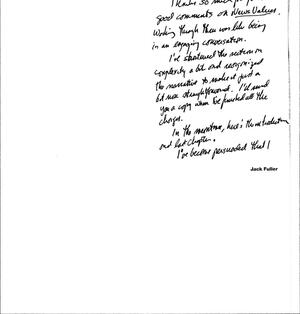 Thanks so much for
good comments on News Values.
Working through them was like being
in an engaging conversation.
I've shortened the section on
complexity a bit and reorganized
the narrative to make it just a
bit more straightforward. I'll send
you a copy when I've finished all the
changes.
In the meantime, here's the introduction
and last chapter.
I've become persuaded that I
Jack Fuller